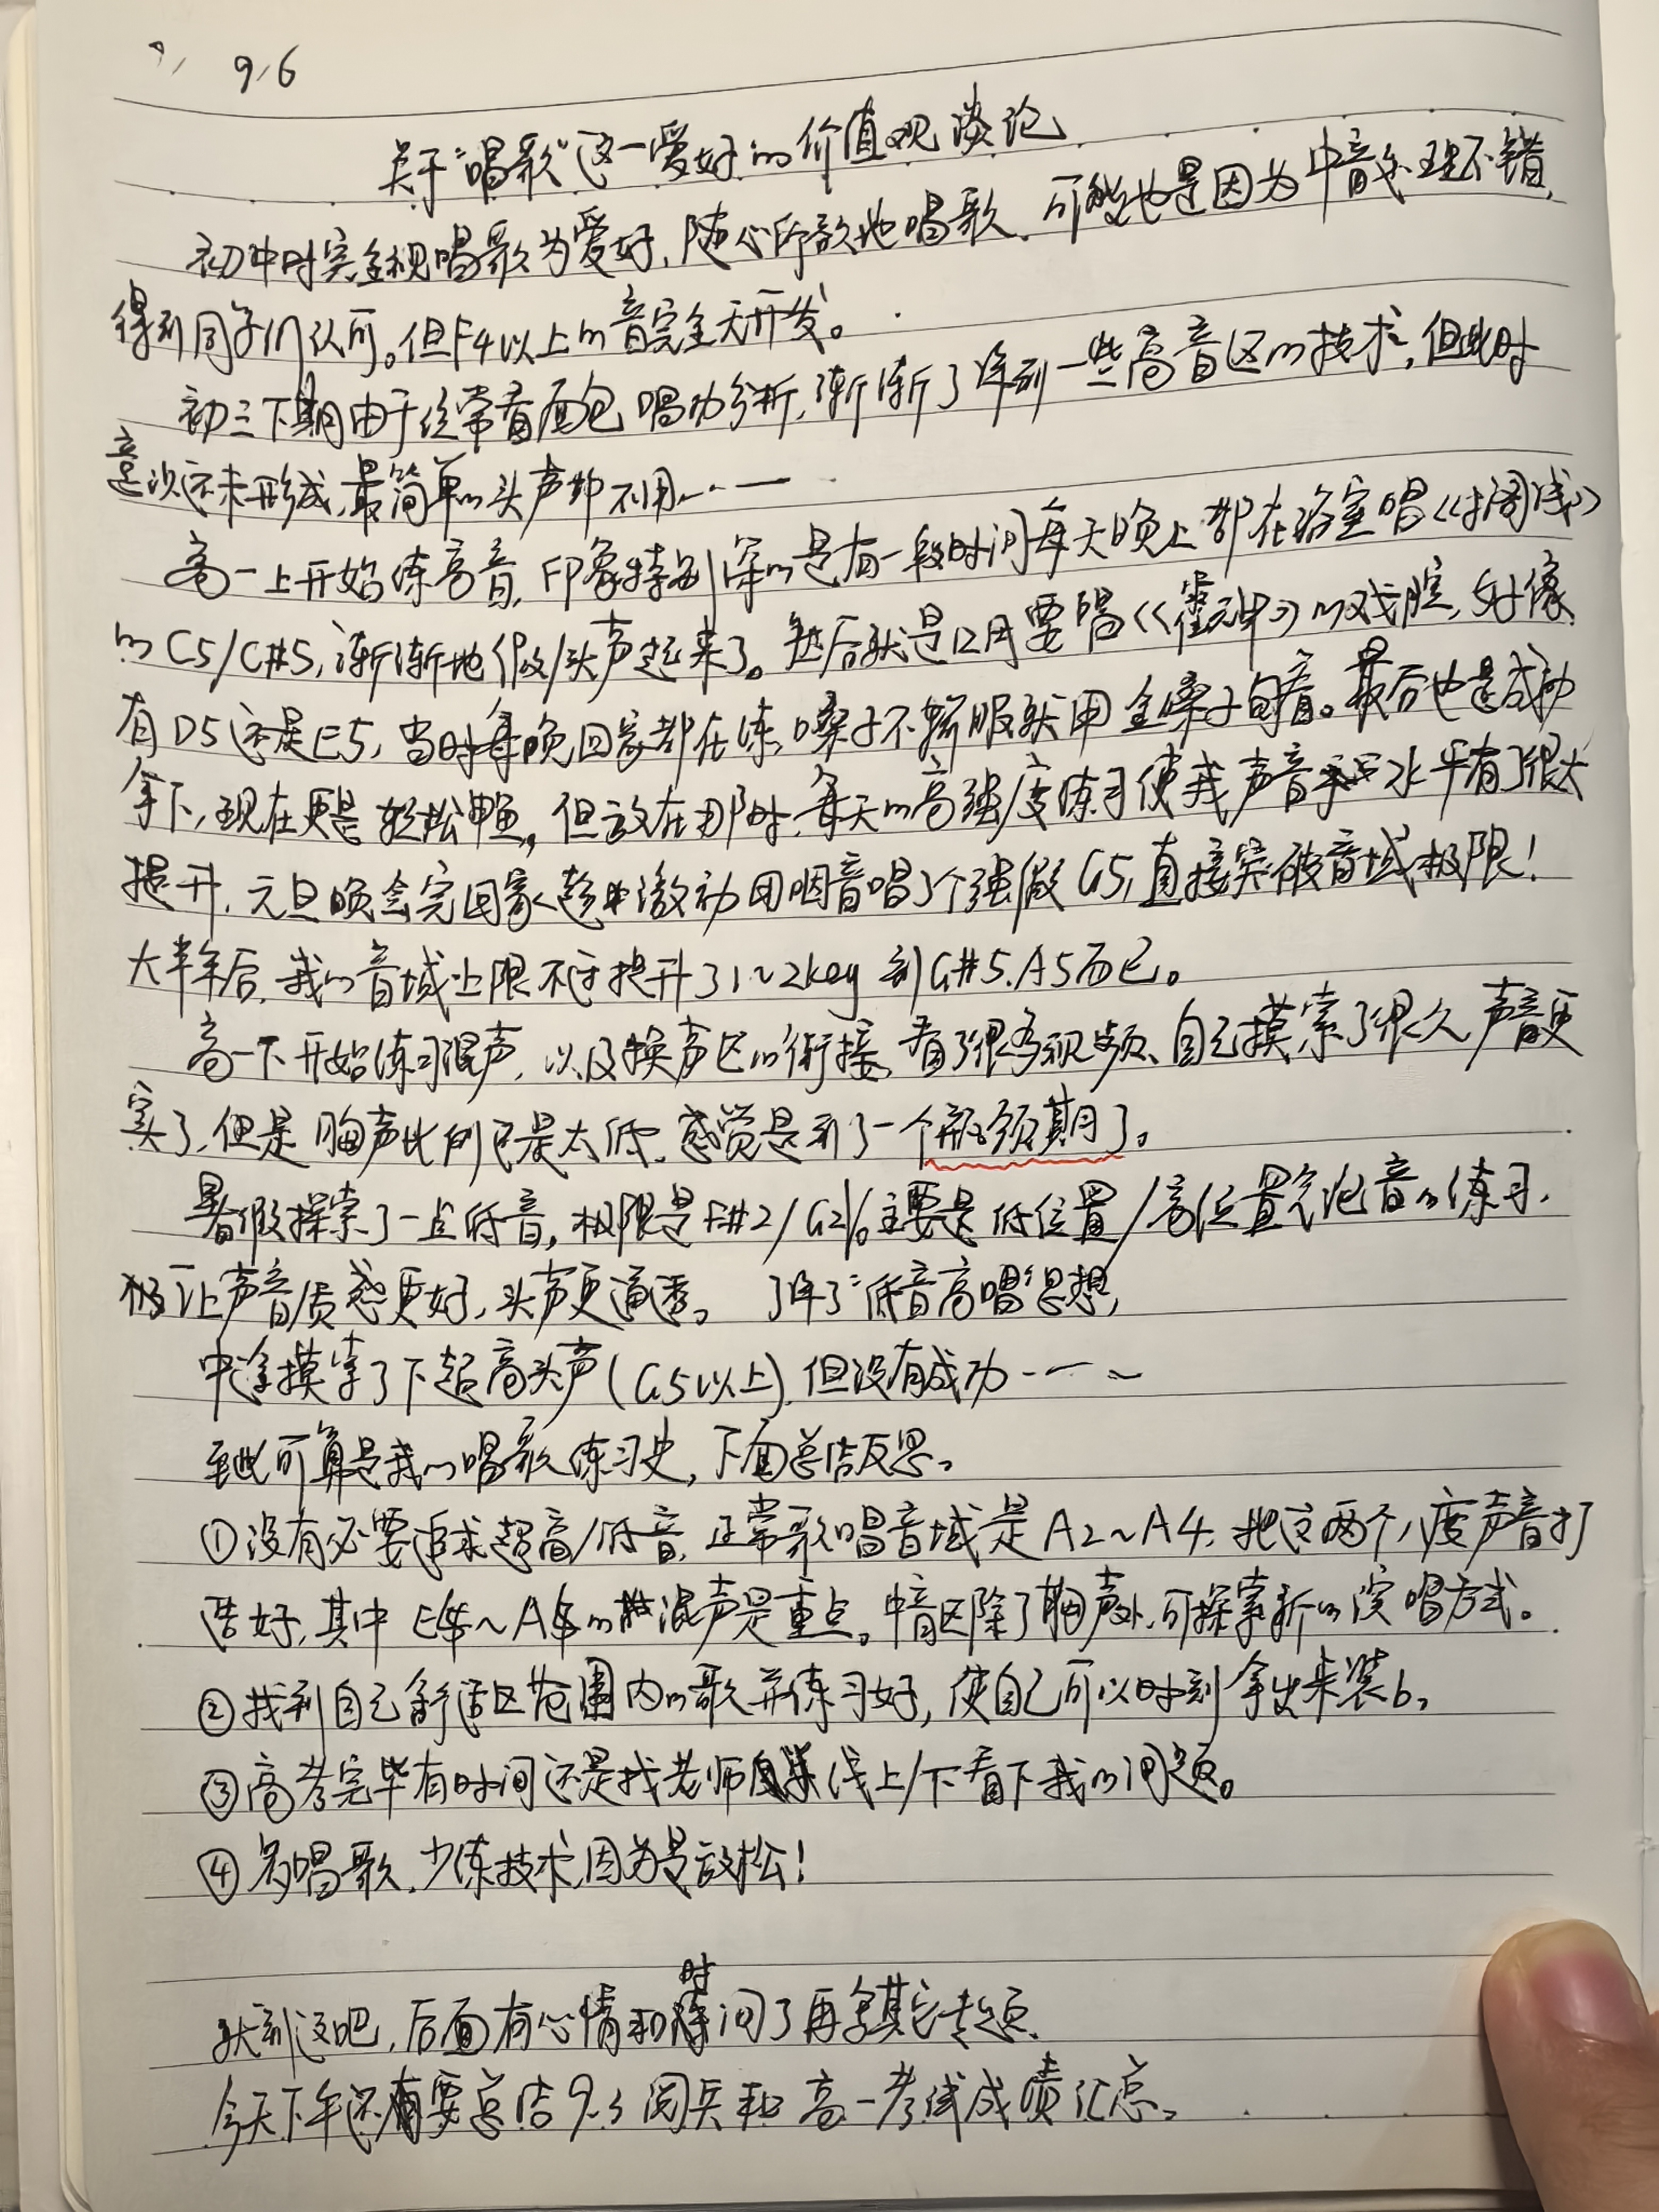 9/6
关于“唱歌”这一爱好的价值观谈论
初中时完全视唱歌为爱好,随心所欲地唱歌.可能也是因为中音处理不错,
得到同学们认可。但F4以上的音完全无开发。
初三下期由于经常看面包唱功分析,渐渐了解到一些高音区的技术,但此时
意识还未形成,最简单的头声却不用……
高一上开始练高音,印象特别深的是有一段时间每天晚上都在浴室唱《》
的C5/C#5,渐渐地假/头声起来了。然后就是12月要唱《霍元甲》的戏腔,好像
有D5还是E5,当时每晚回家都在练,嗓子不舒服就用金嗓子含着。最后也是成功
拿下,现在更是轻松,但放在那时,每天的高强度练习使我声音水平有了很大
提升,元旦晚会完回家激动用咽音唱了个强假G5,直接突破音域极限!
大半年后,我的音域上限不过提升了1~2key到G#5.A5而已。
高一下开始练习混声,以及换声区的衔接,看了很多视频、自己摸索了很久,声音更
实了,但是胸声比例还是太低,感觉是到了一个瓶颈期了。
暑假探索了一点低音,极限是F#2/G2。主要是低位置/高位置气泡音的练习,
让声音质感更好,头声更通透。了解了“低音高唱”思想,
中途摸索了下超高头声(G5以上),但没有成功……
至此可算是我的唱歌练习史,下面总结反思。
①没有必要追求超高/低音,正常歌唱音域是A2~A4,把这两个八度声音打
造好,其中E4~A4的混声是重点。中音区除了胸声外,可探索新的演唱方式。
②找到自己舒适区范围内的歌并练习好,使自己可以时刻拿出来装b。
③高考完毕有时间还是找老师线上/下看下我的问题。
④多唱歌,少练技术,因为是放松!
就到这吧,后面有心情和时间了再写其它专题.
今天下午还要总结9.3阅兵和高一考试成绩汇总。